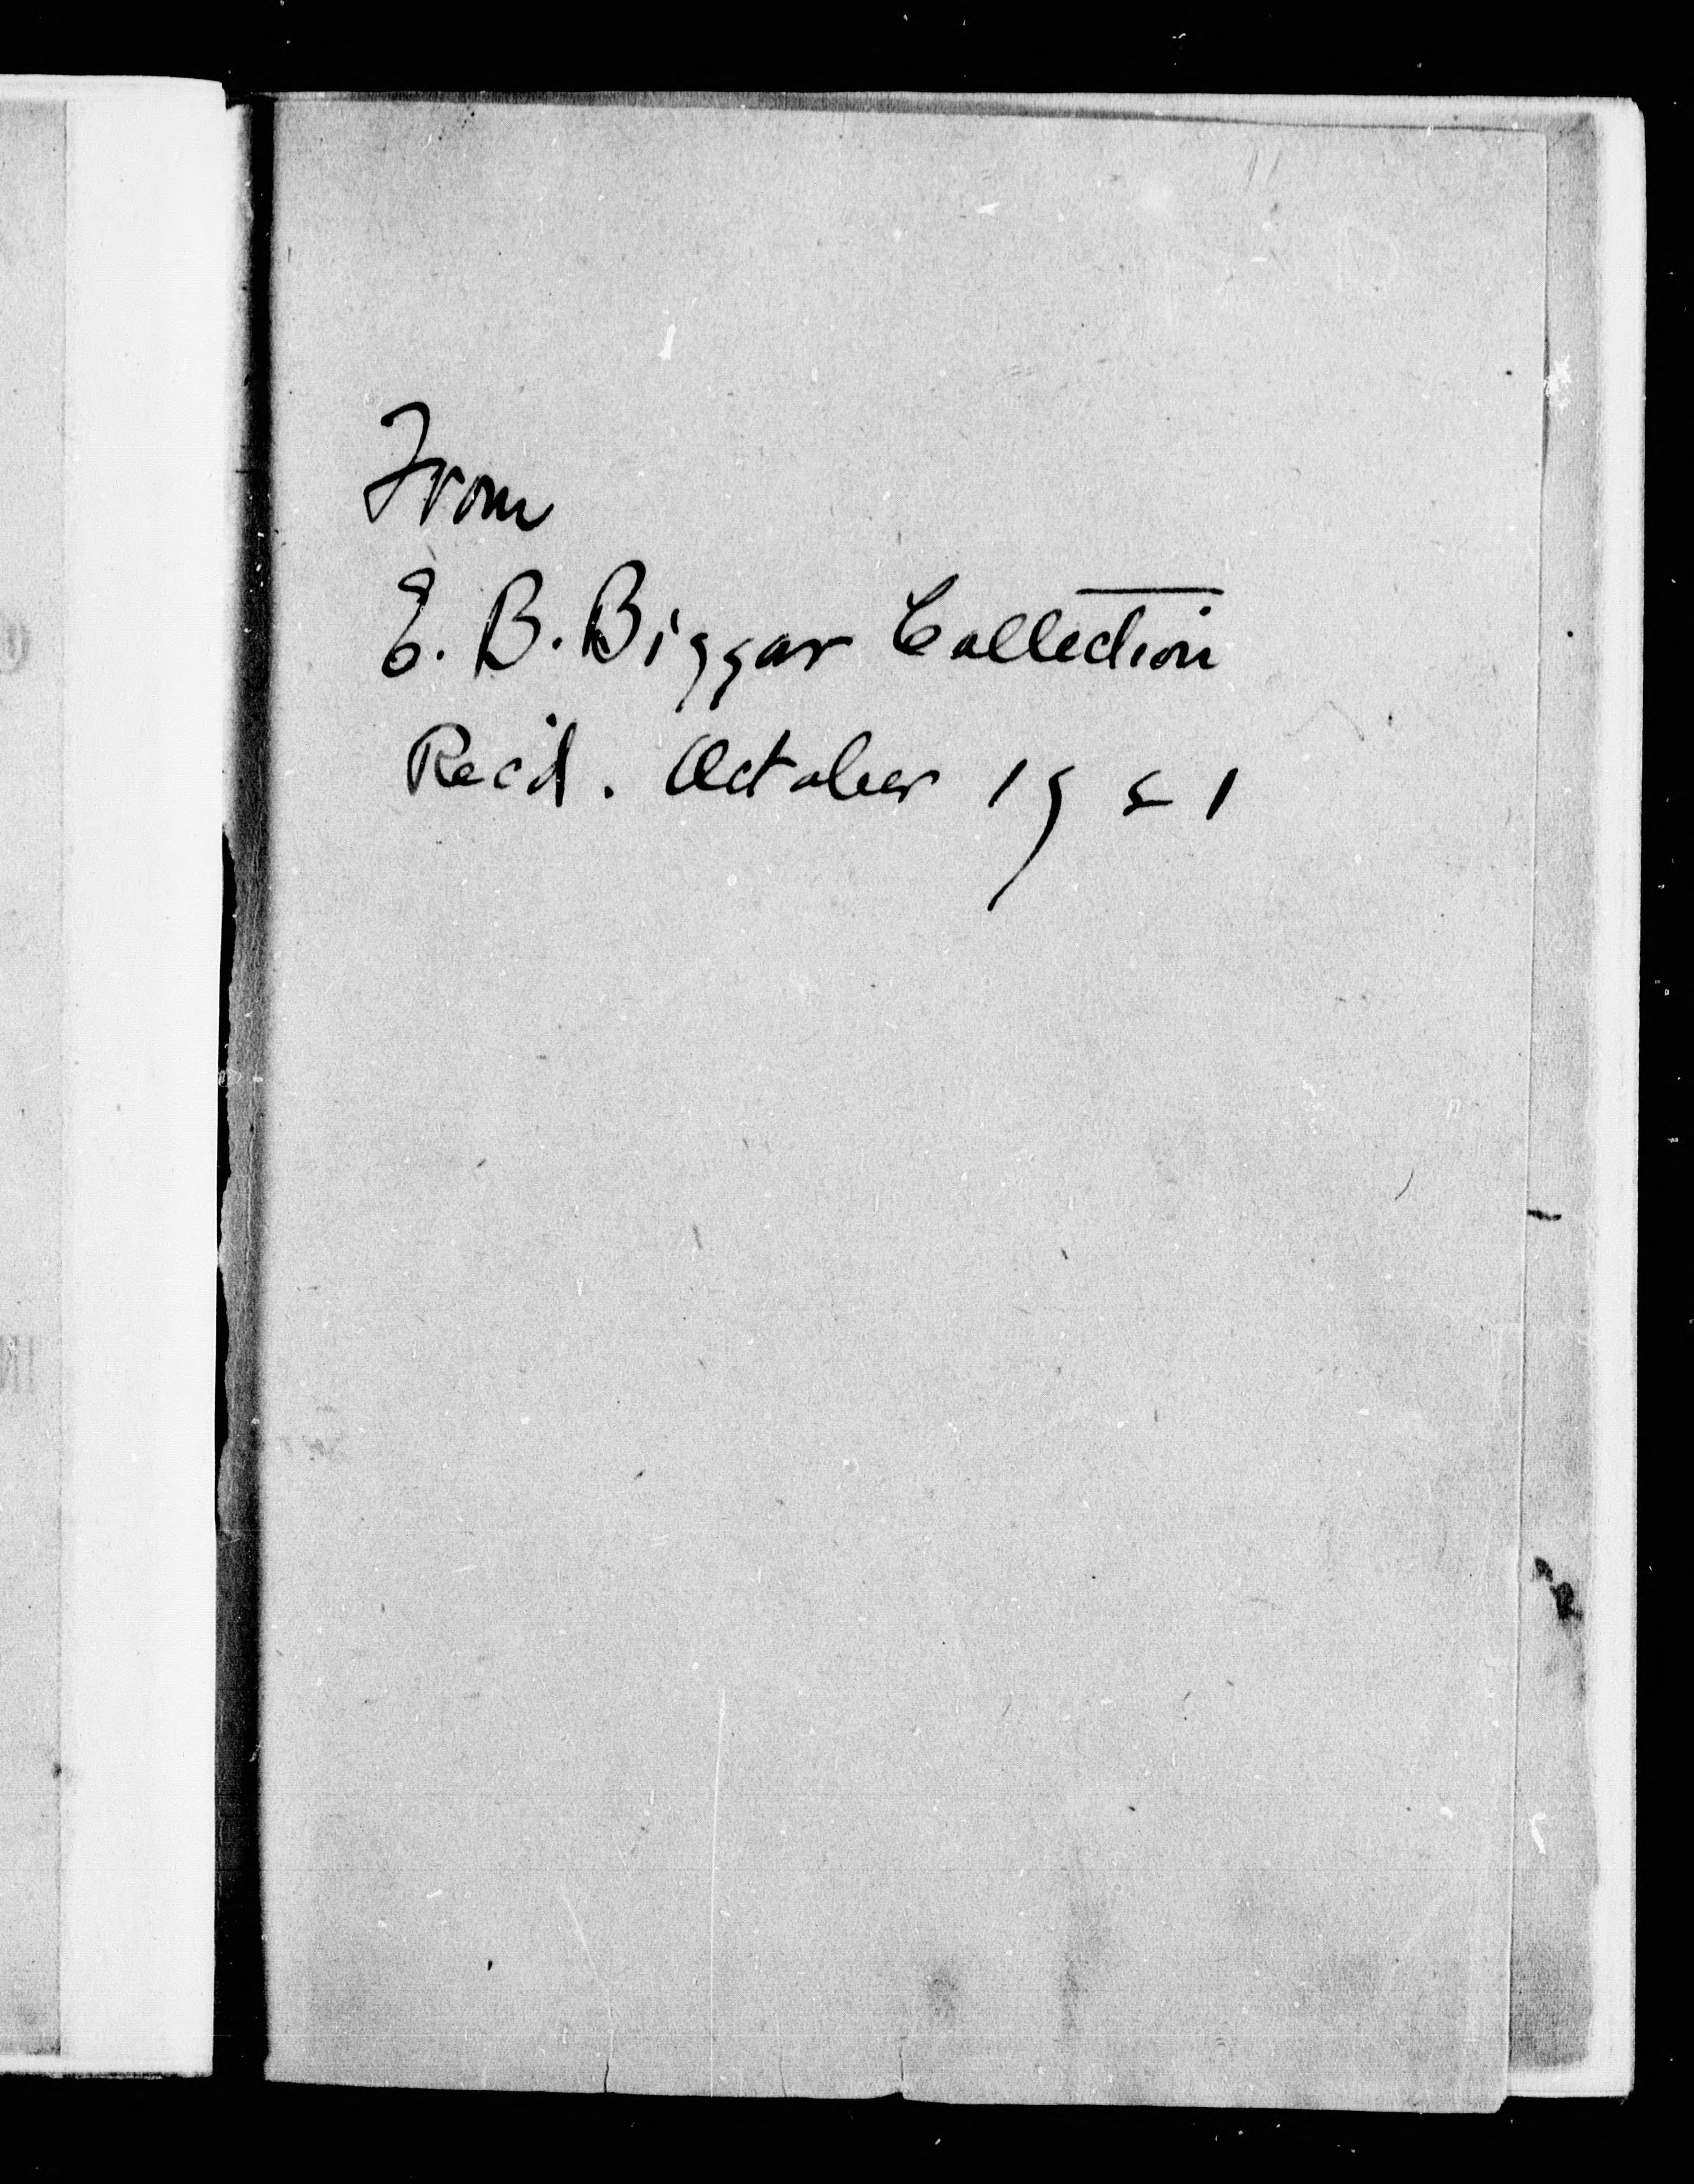 From
E. B. Biggar Collection
Rec'd. October 1921